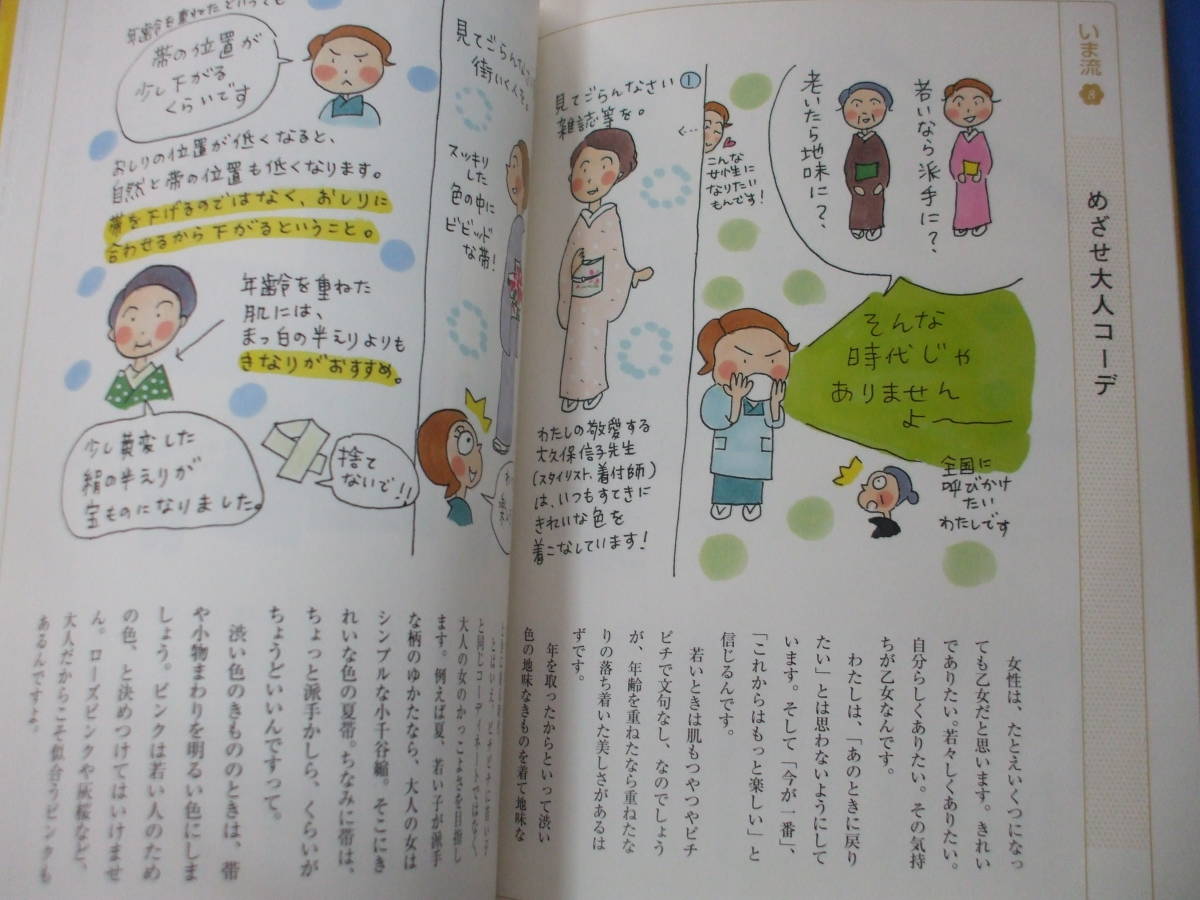 いま流
8
めざせ大人コーデ
若いなら派手に?
老いたら地味に?
そんな
時代じゃ
ありません
よ〜
全国に
呼びかけ
たい
わたしです
く…
こんな
女性に
なりたい
もんです!
見てごらんなさい①
雑誌等を。
わたしの敬愛する
大久保信子先生
(スタイリスト、着付師)
は、いつもすてきに
きれいな色を
着こなしています!
女性は、たとえいくつになっ
ても乙女だと思います。きれい
でありたい。若々しくありたい。
自分らしくありたい。その気持
ちが乙女なんです。
わたしは、「あのときに戻り
たい」とは思わないようにして
います。そして「今が一番」、
「これからはもっと楽しい」と
信じるんです。
若いときは肌もつやつやピチ
ピチで文句なし、なのでしょう
が、年齢を重ねたなら重ねたな
りの落ち着いた美しさがあるは
ずです。
年を取ったからといって渋い
色の地味なきものを着て地味な
見てごらんなさい
街いく人を。
スッキリ
した
色の中に
ビビッド
な帯!
年齢を重ねたといっても
帯の位置が
少し下がる
くらいです
おしりの位置が低くなると、
自然と帯の位置も低くなります。
帯を下げるのではなく、おしりに
合わせるから下がるということ。
年齢を重ねた
肌には、
まっ白の半えりよりも
きなりがおすすめ。
少し黄変した
絹の半えりが
宝ものになりました。
捨て
ないで!!
とはいえ、ピチピチに若い子
と同じコーディネートではなく、
大人の女のかっこよさを目指し
ます。例えば夏、若い子が派手
な柄のゆかたなら、大人の女は
シンプルな小千谷縮。そこにき
れいな色の夏帯。ちなみに帯は、
ちょっと派手かしら、くらいが
ちょうどいいんですって。
渋い色のきもののときは、帯
や小物まわりを明るい色にしま
しょう。ピンクは若い人のため
の色、と決めつけてはいけませ
ん。ローズピンクや灰桜など、
大人だからこそ似合うピンクも
あるんですよ。